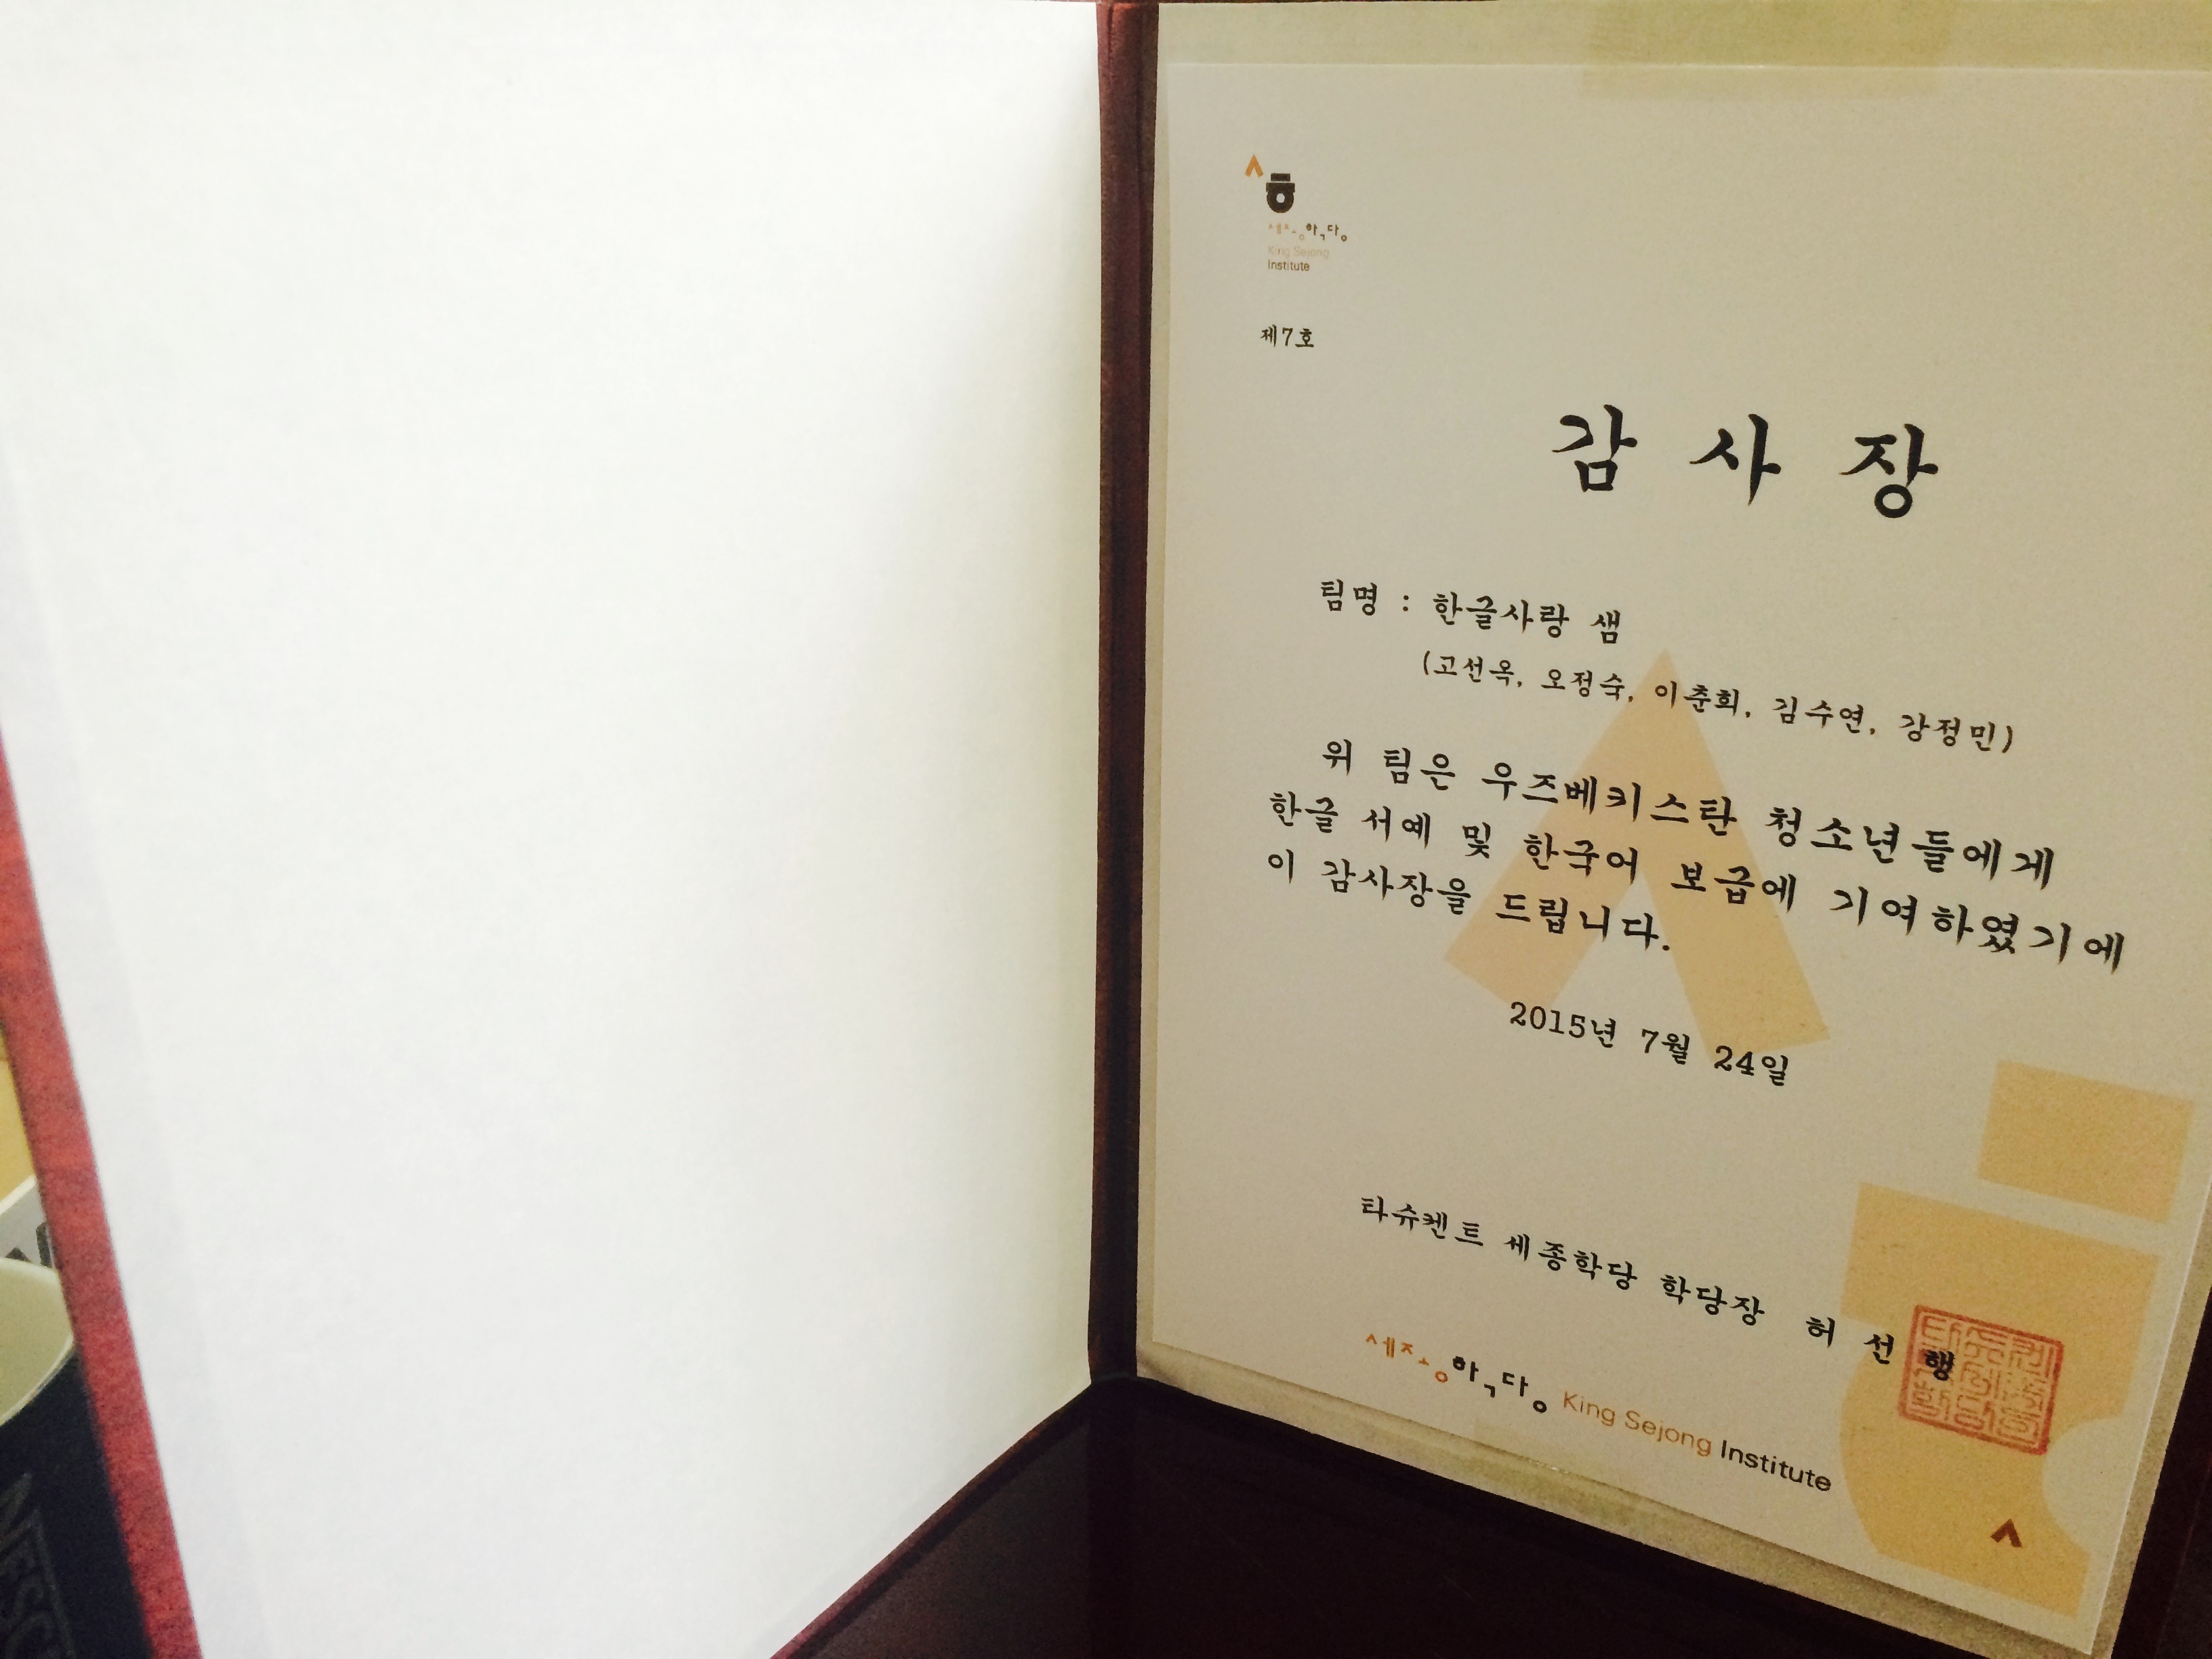 세종학당
King Sejong
Institute
제7호
감 사 장
팀명 : 한글사랑 샘
(고선옥, 오정숙, 이춘희, 김수연, 강정민)
위 팀은 우즈베키스탄 청소년들에게
한글 서예 및 한국어 보급에 기여하였기에
이 감사장을 드립니다.
2015년 7월 24일
타슈켄트 세종학당 학당장 허 선 행
세종학당 King Sejong Institute